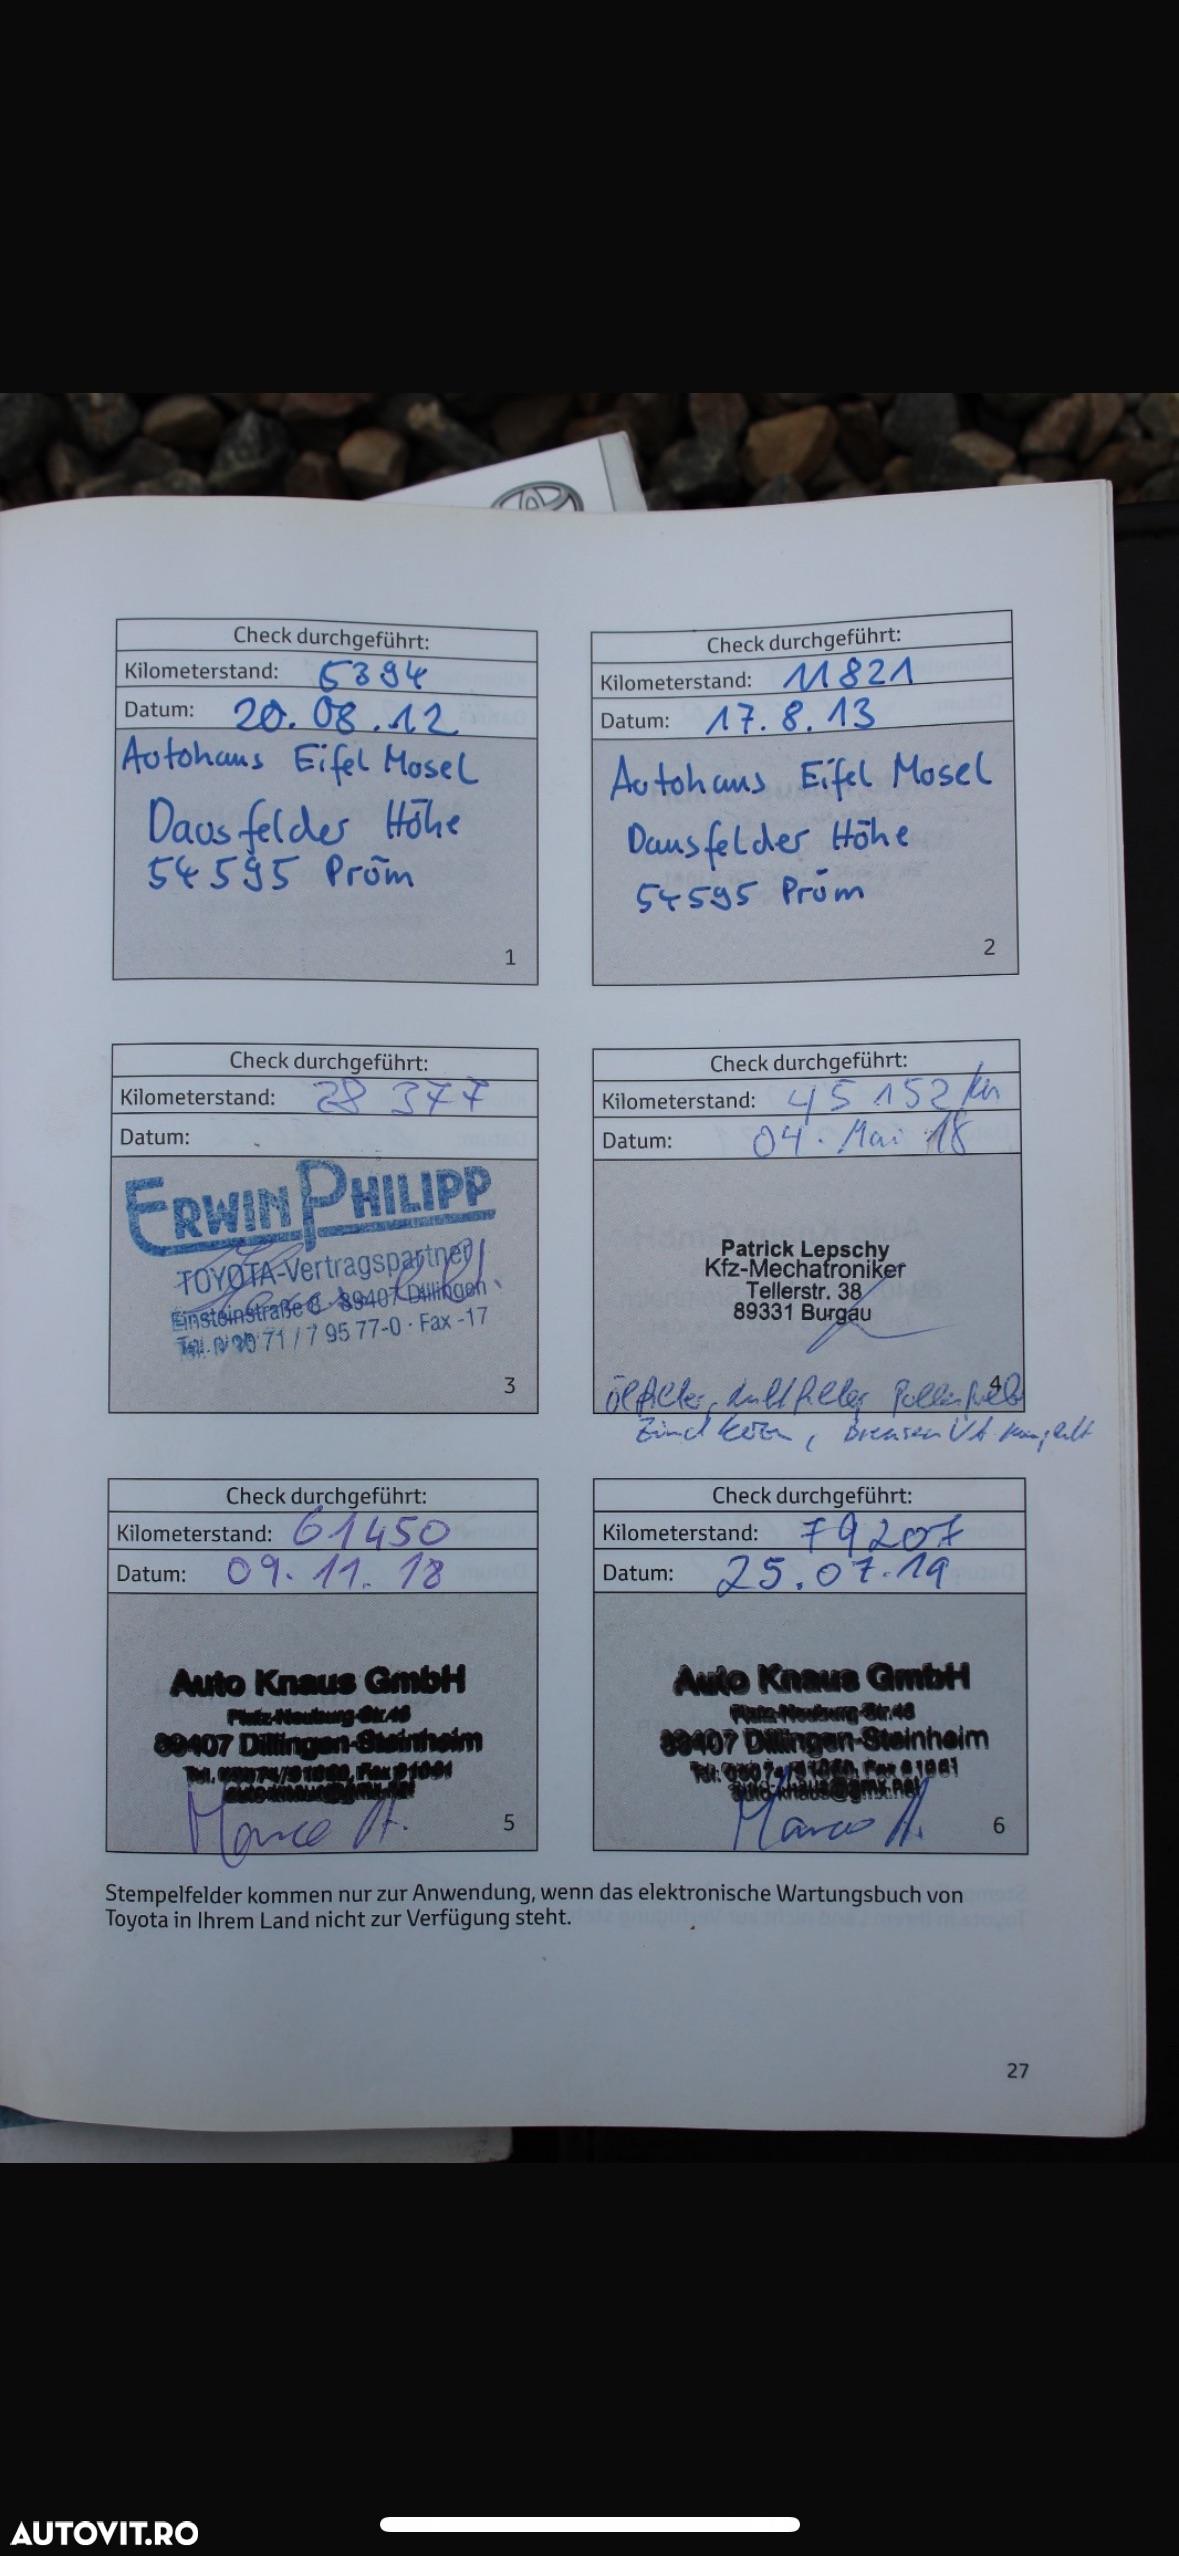 Check durchgeführt:
Kilometerstand: 5394
Datum: 20.08.12
Autohaus Eifel Mosel
Dausfelder Höhe
54595 Prüm
1
Check durchgeführt:
Kilometerstand: 11821
Datum: 17.8.13
Autohaus Eifel Mosel
Dausfelder Höhe
54595 Prüm
2
Check durchgeführt:
Kilometerstand: 28 377
Datum:
ERWIN PHILIPP
TOYOTA-Vertragspartner
Einsteinstraße 8 · 89407 Dillingen
Tel. 0 90 71 / 7 95 77-0 · Fax -17
3
Check durchgeführt:
Kilometerstand: 45 152 km
Datum: 04. Mai 18
Patrick Lepschy
Kfz-Mechatroniker
Tellerstr. 38
89331 Burgau
4
Ölfilter, Luftfilter, Pollenfilter
Zündkerzen, Bremsen VA komplett
Check durchgeführt:
Kilometerstand: 61450
Datum: 09.11.18
Auto Knaus GmbH
Pfalz-Neuburg-Str.
89407 Dillingen-Steinheim
Marco H.
5
Check durchgeführt:
Kilometerstand: 79207
Datum: 25.07.19
Auto Knaus GmbH
Pfalz-Neuburg-Str.
89407 Dillingen-Steinheim
auto-knaus@gmx.net
Marco H.
6
Stempelfelder kommen nur zur Anwendung, wenn das elektronische Wartungsbuch von
Toyota in Ihrem Land nicht zur Verfügung steht.
27
AUTOVIT.RO